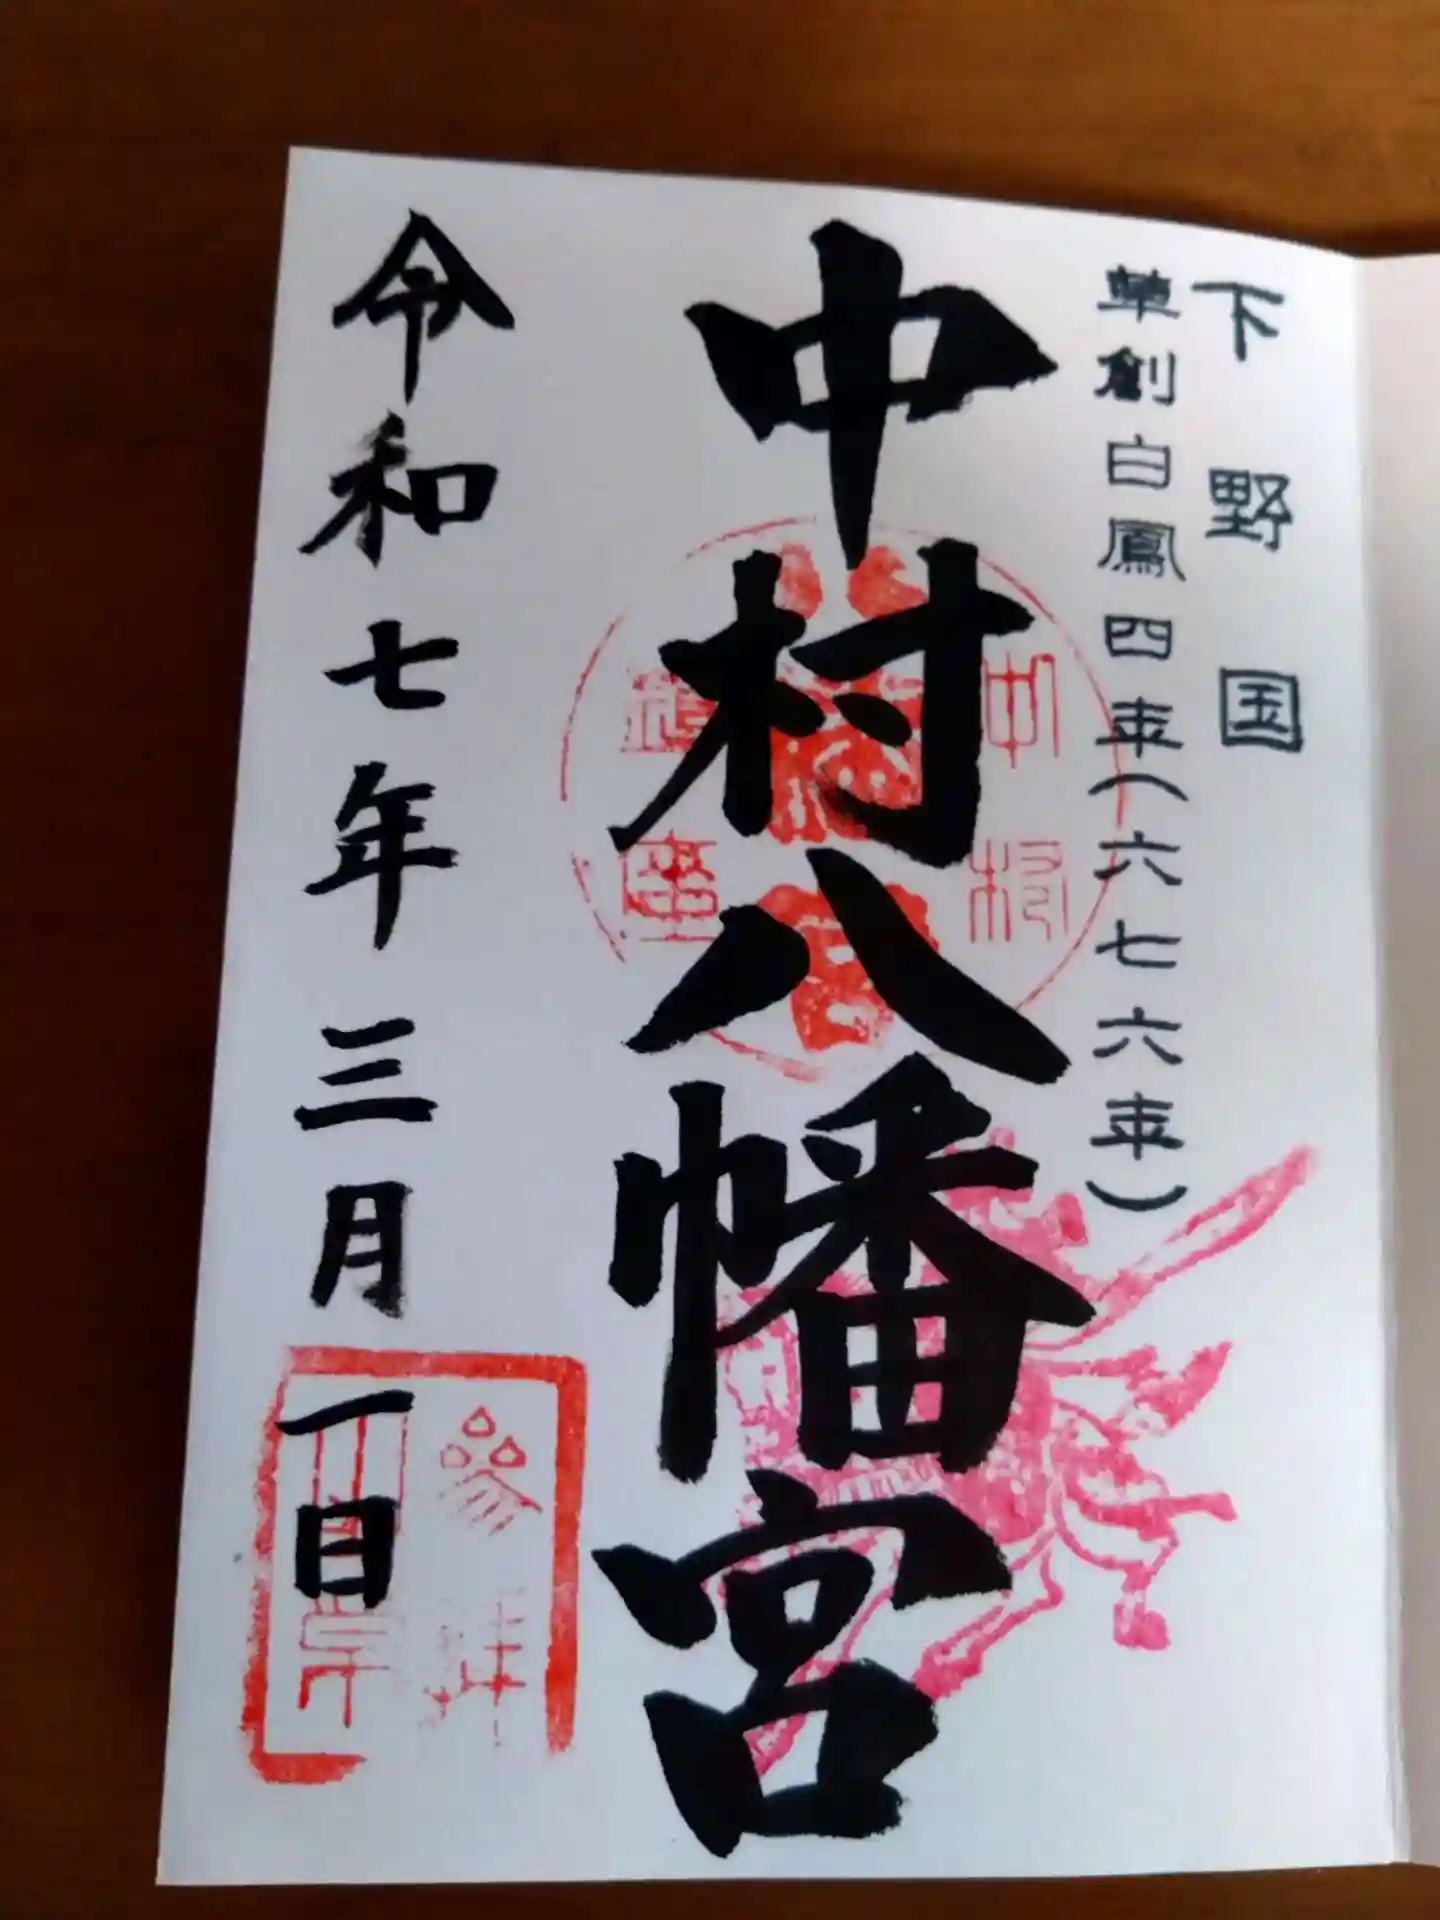 下野国
草創白鳳四年(六七六年)
中村八幡宮
令和七年三月一日
中村